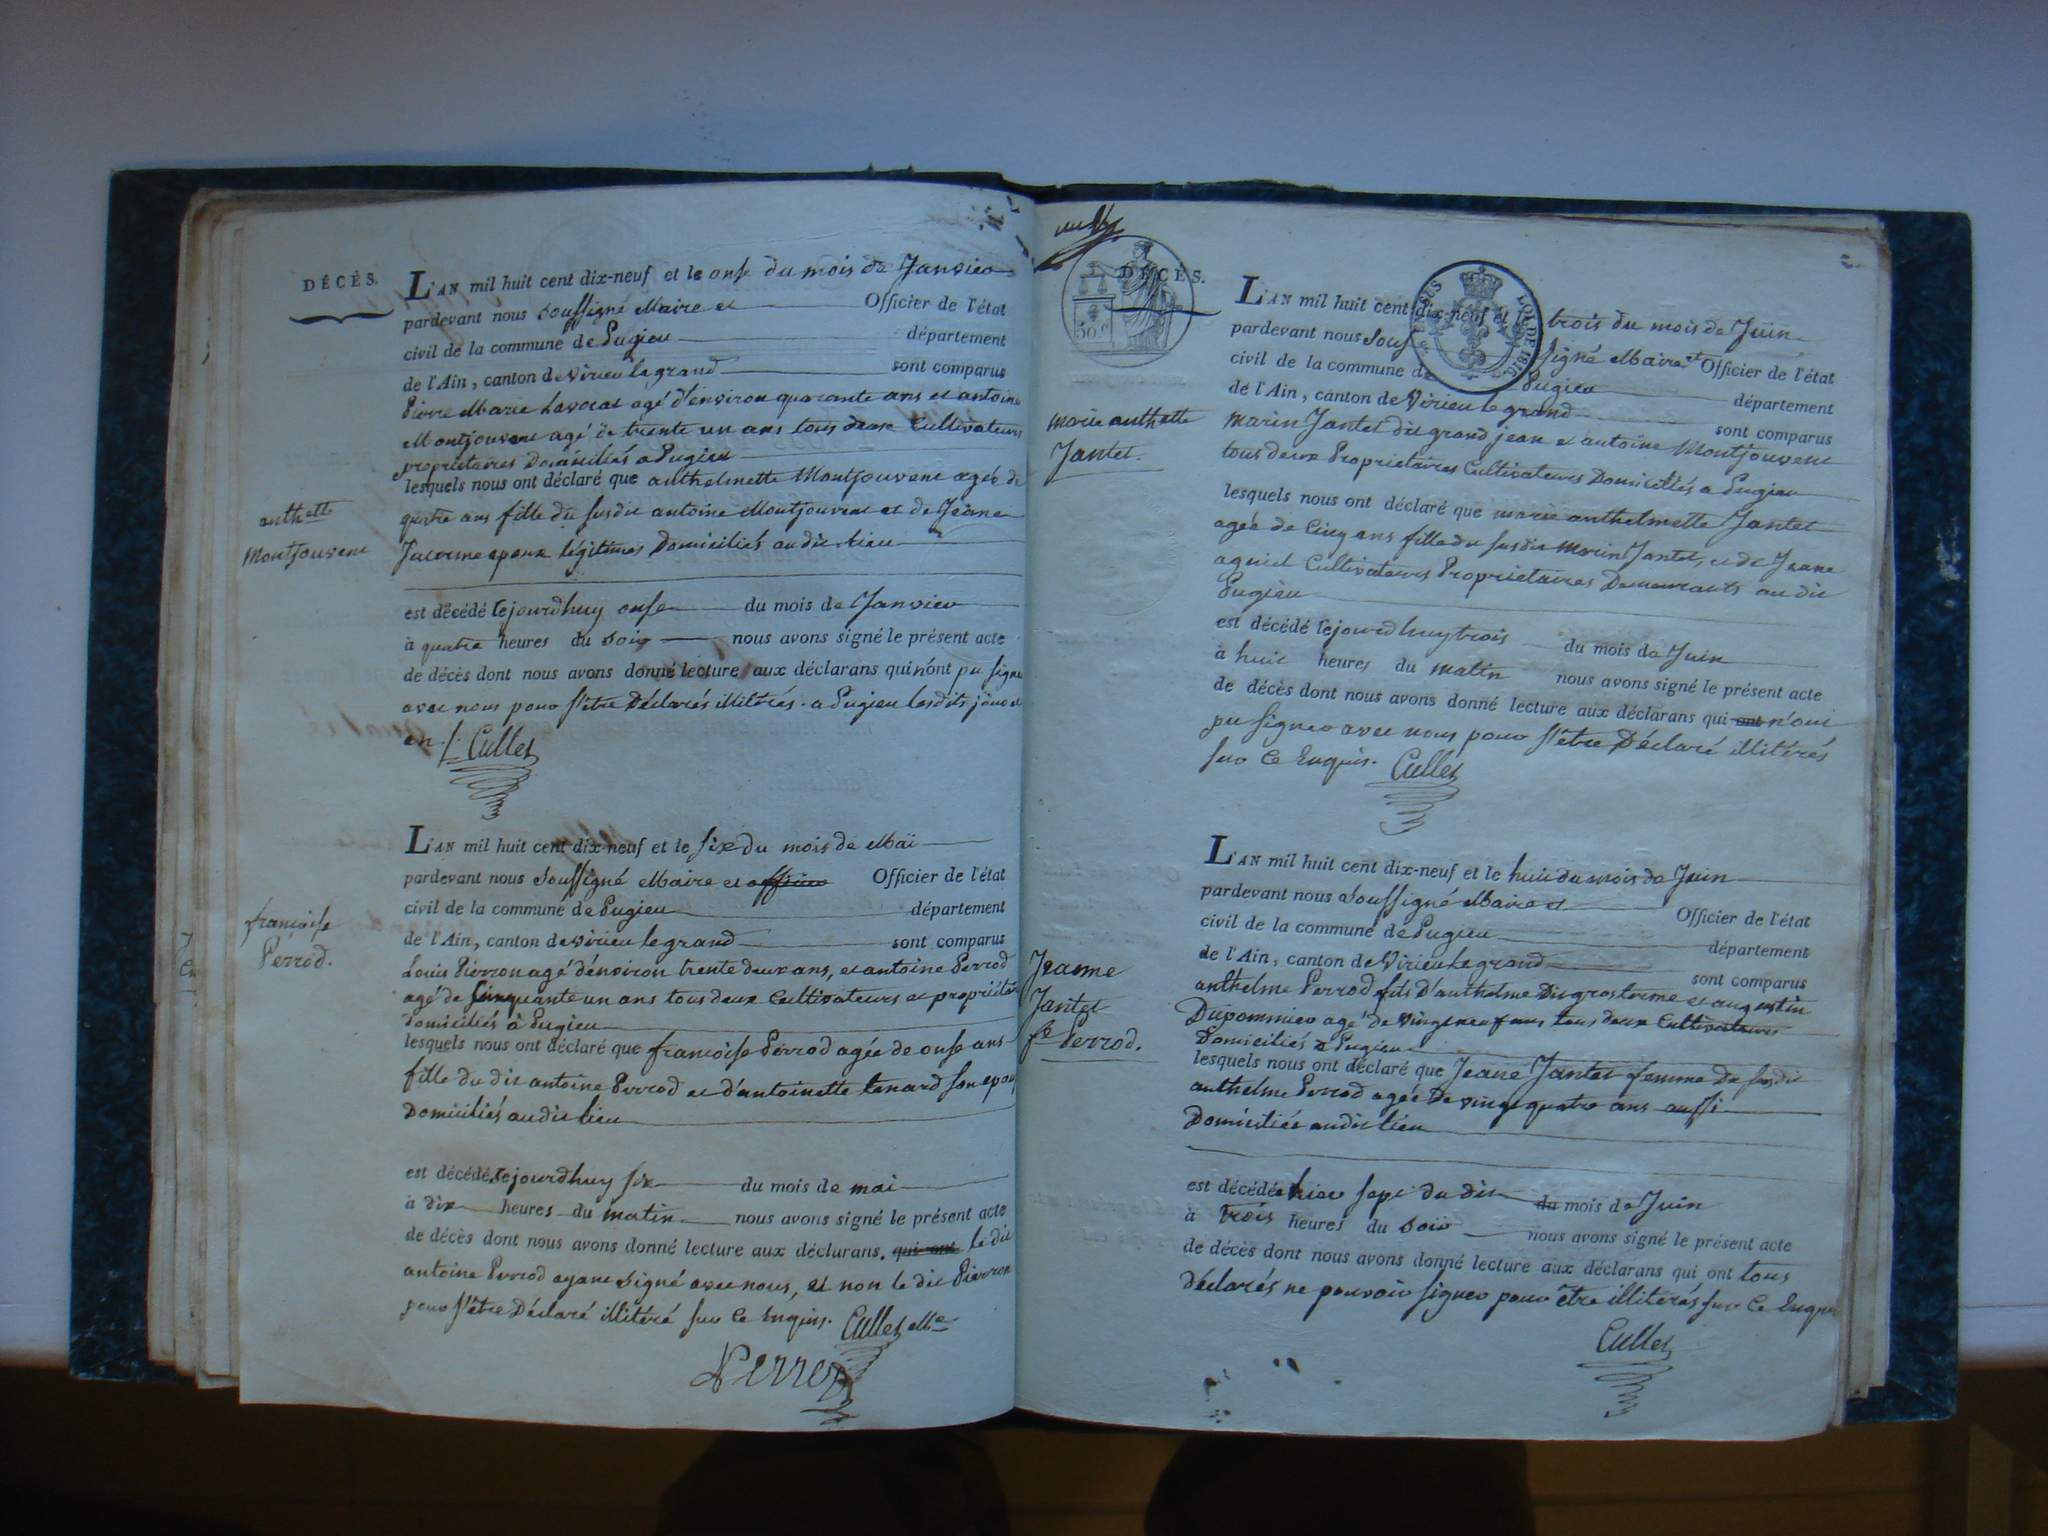 DÉCÈS.
L'AN mil huit cent dix-neuf et le onse du mois de Janvier
pardevant nous soussigné Maire et Officier de l'état
civil de la commune de Pugieu département
de l'Ain, canton de Virieu le grand sont comparus
Pierre Marie Lavocat agé d'environ quarante ans et antoine
Montjouvent agé de trente un ans tous deux Cultivateurs
proprietaires Domiciliés a Pugieu
lesquels nous ont déclaré que anthelmette Montjouvent agée de
anthette
Montjouvent
quatre ans fille du susdit antoine Montjouvent et de Jeane
epoux légitimes Domiciliés au dit lieu
est décédé cejourdhuy onse du mois de Janvier
à quatre heures du soir nous avons signé le présent acte
de décès dont nous avons donné lecture aux déclarans qui n'ont pu signer
avec nous pour s'être Déclarés illitérés. a Pugieu lesdits jour et
an Cullet
L'AN mil huit cent dix-neuf et le six du mois de Mai
pardevant nous soussigné Maire et officier Officier de l'état
civil de la commune de Pugieu département
françoise
Perrod.
de l'Ain, canton de Virieu le grand sont comparus
Louis Pierron agé d'environ trente deux ans, et antoine Perrod
agé de Cinquante un ans tous deux Cultivateurs et propriétaires
domiciliés à Pugieu
lesquels nous ont déclaré que françoise Perrod agée de onse ans
fille du dit antoine Perrod et d'antoinette tenard son epouse
Domiciliés au dit lieu
est décédé cejourdhuy six du mois de mai
à dix heures du matin nous avons signé le présent acte
de décès dont nous avons donné lecture aux déclarans. qui ont le dit
antoine Perrod ayant signé avec nous, et non le dit Pierron
pour s'être Déclaré illitéré sur ce Enquis. Cullet Me
Perrod
DÉCÈS.
50c
LOI DE 1816.
L'AN mil huit cent dix-neuf et le trois du mois de Juin
pardevant nous Sous signé Maire et Officier de l'état
civil de la commune de Pugieu département
de l'Ain, canton de Virieu le grand sont comparus
marie anthette
Jantet.
marin Jantet dit grand jean et antoine Montjouvent
tous deux Proprietaires Cultivateurs Domiciliés a Pugieu
lesquels nous ont déclaré que marie anthelmette Jantet
agée de Cinq ans fille du susdit Marin Jantet, et de Jeane
agniel Cultivateurs Proprietaires Demeurants au dit
Pugieu
est décédé cejourdhuy trois du mois de Juin
à huit heures du matin nous avons signé le présent acte
de décès dont nous avons donné lecture aux déclarans qui ont n'ont
pu signer avec nous pour s'être Déclaré illitérés
sur Ce Enquis. Cullet
L'AN mil huit cent dix-neuf et le huit du mois de Juin
pardevant nous soussigné Maire et Officier de l'état
civil de la commune de Pugieu département
de l'Ain, canton de Virieu Le grand sont comparus
Jeanne
Jantet
fe Perrod.
anthelme Perrod fils D'anthelme Dit et augustin
Dupommier agé de vingt neuf ans tous deux Cultivateurs
Domiciliés a Pugieu
lesquels nous ont déclaré que Jeane Jantet femme Du susdit
anthelme Perrod agée De vingt quatre ans aussi
Domiciliée au dit lieu
est décédée hier sept du dit du mois de Juin
à trois heures du soir nous avons signé le présent acte
de décès dont nous avons donné lecture aux déclarans qui ont tous
Déclarés ne pouvoir signer pour être illitérés sur Ce Enquis
Cullet